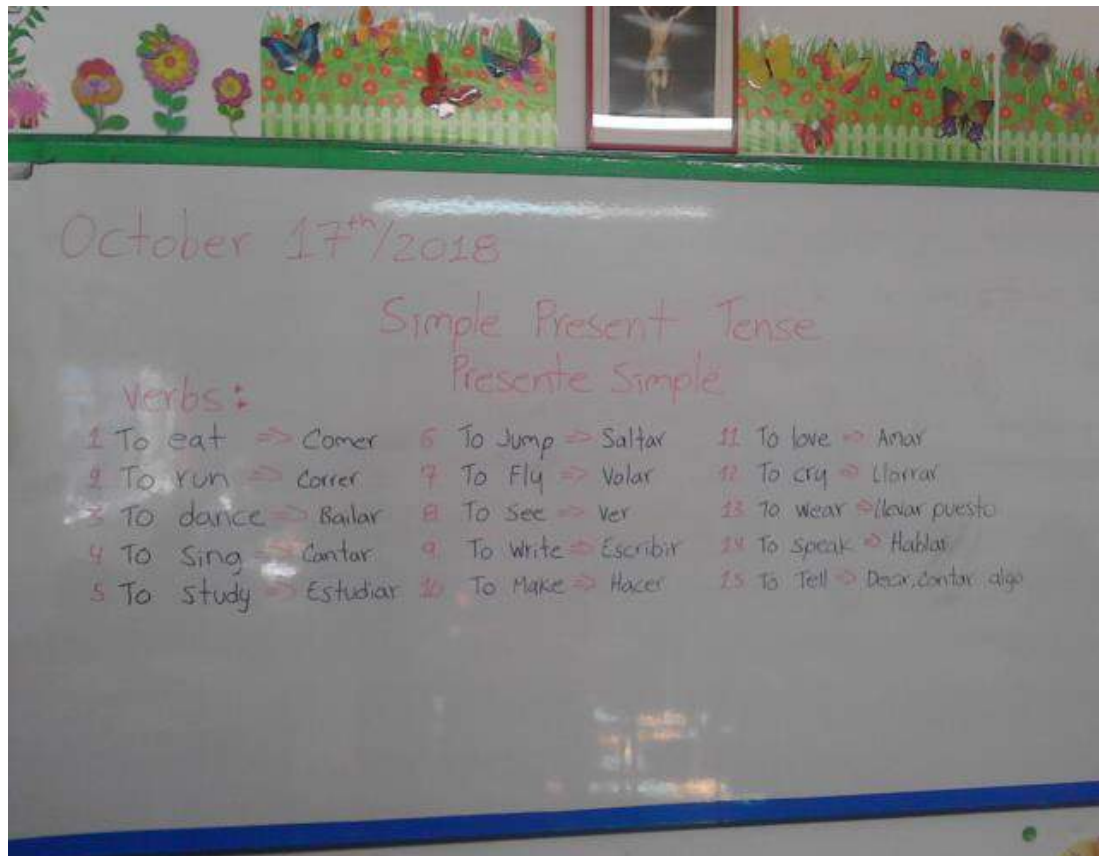 October 17th/2018
Simple Present Tense
Presente Simple
Verbs:
1 To eat => Comer
2 To run => Correr
3 To dance => Bailar
4 To Sing => Cantar
5 To study => Estudiar
6 To Jump => Saltar
7 To Fly => Volar
8 To See => Ver
9. To Write => Escribir
10 To Make => Hacer
11 To love => Amar
12 To cry => Llorrar
13 To wear => llevar puesto
14 To speak => Hablar
15 To Tell => Decir, Contar algo